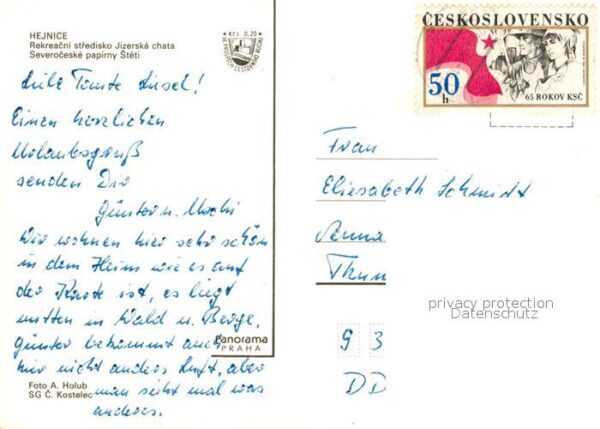 HEJNICE
Rekreační středisko Jizerská chata
Severočeské papirny Štětí
Kčs. 0,20
ČESKOSLOVENSKO
50 h
65 ROKOV KSČ
Liebe Tante Liesel!
Einen herzlichen
Urlaubsgruß
senden Dir
Günter u.
Wir wohnen hier sehr schön
in dem Heim wie es auf
der Karte ist, es liegt
mitten in Wald u. Berge,
Günter bekommt auch
hier nicht andere Luft, aber
man sieht mal was
anderes.
Panorama
PRAHA
Foto A. Holub
SG Č. Kostelec
Frau
Eliesabeth Schmidt
privacy protection
Datenschutz
9 3
DD